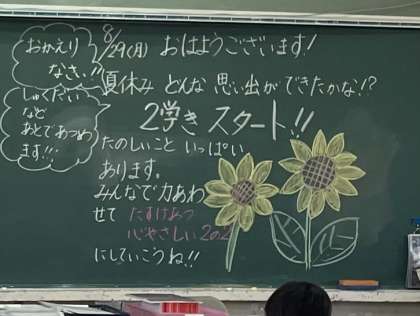 おかえり
なさい!!
8/29(月) おはようございます!
夏休み どんな 思い出が できたかな!?
しゅくだい
など
あとであつめ
ます!!!
2学き スタート!!
たのしいこと いっぱい
あります。
みんなで力あわ
せて たすけあう
心やさしい 2の2
にしていこうね!!